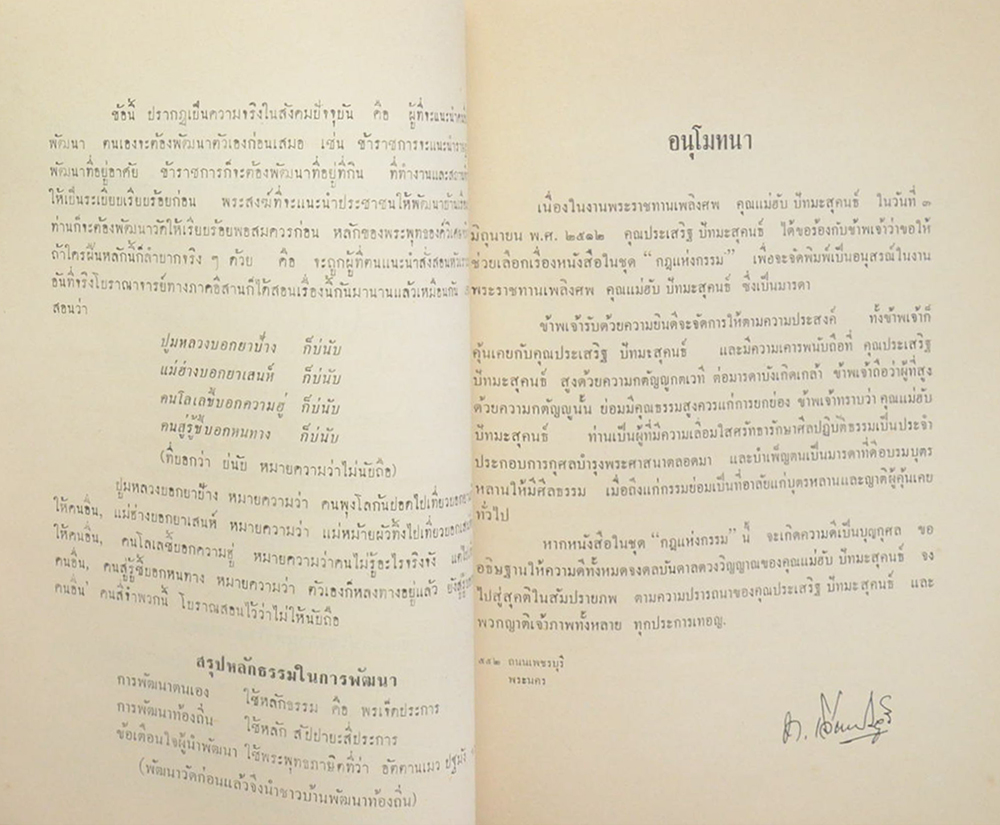 ข้อนี้ ปรากฏเป็นความจริงในสังคมปัจจุบัน คือ ผู้ที่จะแนะนำ
พัฒนา ตนเองจะต้องพัฒนาตัวเองก่อนเสมอ เช่น ข้าราชการจะแนะนำ
พัฒนาที่อยู่อาศัย ข้าราชการก็จะต้องพัฒนาที่อยู่ที่กิน ที่ทำงานและ
ให้เป็นระเบียบเรียบร้อยก่อน พระสงฆ์ที่จะแนะนำประชาชนให้พัฒนา
ท่านก็จะต้องพัฒนาวัดให้เรียบร้อยพอสมควรก่อน หลักของพระพุทธองค์
ถ้าใครฝืนหลักนี้ก็ลำบากจริง ๆ ด้วย คือ จะถูกผู้ที่ตนแนะนำสั่งสอน
อันที่จริงโบราณาจารย์ทางภาคอีสานก็ได้สอนเรื่องนี้กันมานานแล้วเหมือนกัน
สอนว่า
ปุมหลวงบอกยาป้าง ก็บ่นับ
แม่ฮ่างบอกยาเสนห์ ก็บ่นับ
คนโลเลขี้บอกความฮู่ ก็บ่นับ
คนสู่รู้ขี้บอกหนทาง ก็บ่นับ
(ที่บอกว่า บ่นับ หมายความว่าไม่นับถือ)
ปุมหลวงบอกยาป้าง หมายความว่า คนพุงโลกันปอดไปเที่ยวบอกยา
ให้คนอื่น, แม่ฮ่างบอกยาเสนห์ หมายความว่า แม่หม้ายผัวทิ้งไปเที่ยวบอก
ให้คนอื่น, คนโลเลขี้บอกความฮู่ หมายความว่าคนไม่รู้อะไรจริงจัง
คนอื่น, คนสู่รู้ขี้บอกหนทาง หมายความว่า ตัวเองก็หลงทางอยู่แล้ว ยัง
คนอื่น คนสี่จำพวกนี้ โบราณสอนไว้ว่าไม่ให้นับถือ
สรุปหลักธรรมในการพัฒนา
การพัฒนาตนเอง ใช้หลักธรรม คือ พรเจ็ดประการ
การพัฒนาท้องถิ่น ใช้หลัก สัปปายะสี่ประการ
ข้อเตือนใจผู้นำพัฒนา ใช้พระพุทธภาษิตที่ว่า อัตตานเมว ปฐมัง
(พัฒนาวัดก่อนแล้วจึงนำชาวบ้านพัฒนาท้องถิ่น)
อนุโมทนา
เนื่องในงานพระราชทานเพลิงศพ คุณแม่ฮับ ปัทมะสุคนธ์ ในวันที่ ๓
มิถุนายน พ.ศ. ๒๕๑๒ คุณประเสริฐ ปัทมะสุคนธ์ ได้ขอร้องกับข้าพเจ้าว่าขอให้
ช่วยเลือกเรื่องหนังสือในชุด “กฎแห่งกรรม” เพื่อจะจัดพิมพ์เป็นอนุสรณ์ในงาน
พระราชทานเพลิงศพ คุณแม่ฮับ ปัทมะสุคนธ์ ซึ่งเป็นมารดา
ข้าพเจ้ารับด้วยความยินดีจะจัดการให้ตามความประสงค์ ทั้งข้าพเจ้าก็
คุ้นเคยกับคุณประเสริฐ ปัทมะสุคนธ์ และมีความเคารพนับถือที่ คุณประเสริฐ
ปัทมะสุคนธ์ สูงด้วยความกตัญญูกตเวที ต่อมารดาบังเกิดเกล้า ข้าพเจ้าถือว่าผู้ที่สูง
ด้วยความกตัญญูนั้น ย่อมมีคุณธรรมสูงควรแก่การยกย่อง ข้าพเจ้าทราบว่า คุณแม่ฮับ
ปัทมะสุคนธ์ ท่านเป็นผู้ที่มีความเลื่อมใสศรัทธารักษาศีลปฏิบัติธรรมเป็นประจำ
ประกอบการกุศลบำรุงพระศาสนาตลอดมา และบำเพ็ญตนเป็นมารดาที่ดีอบรมบุตร
หลานให้มีศีลธรรม เมื่อถึงแก่กรรมย่อมเป็นที่อาลัยแก่บุตรหลานและญาติผู้คุ้นเคย
ทั่วไป
หากหนังสือในชุด “กฎแห่งกรรม” นี้ จะเกิดความดีเป็นบุญกุศล ขอ
อธิษฐานให้ความดีทั้งหมดจงดลบันดาลดวงวิญญาณของคุณแม่ฮับ ปัทมะสุคนธ์ จง
ไปสู่สุคติในสัมปรายภพ ตามความปรารถนาของคุณประเสริฐ ปัทมะสุคนธ์ และ
พวกญาติเจ้าภาพทั้งหลาย ทุกประการเทอญ.
๕๕๒ ถนนเพชรบุรี
พระนคร